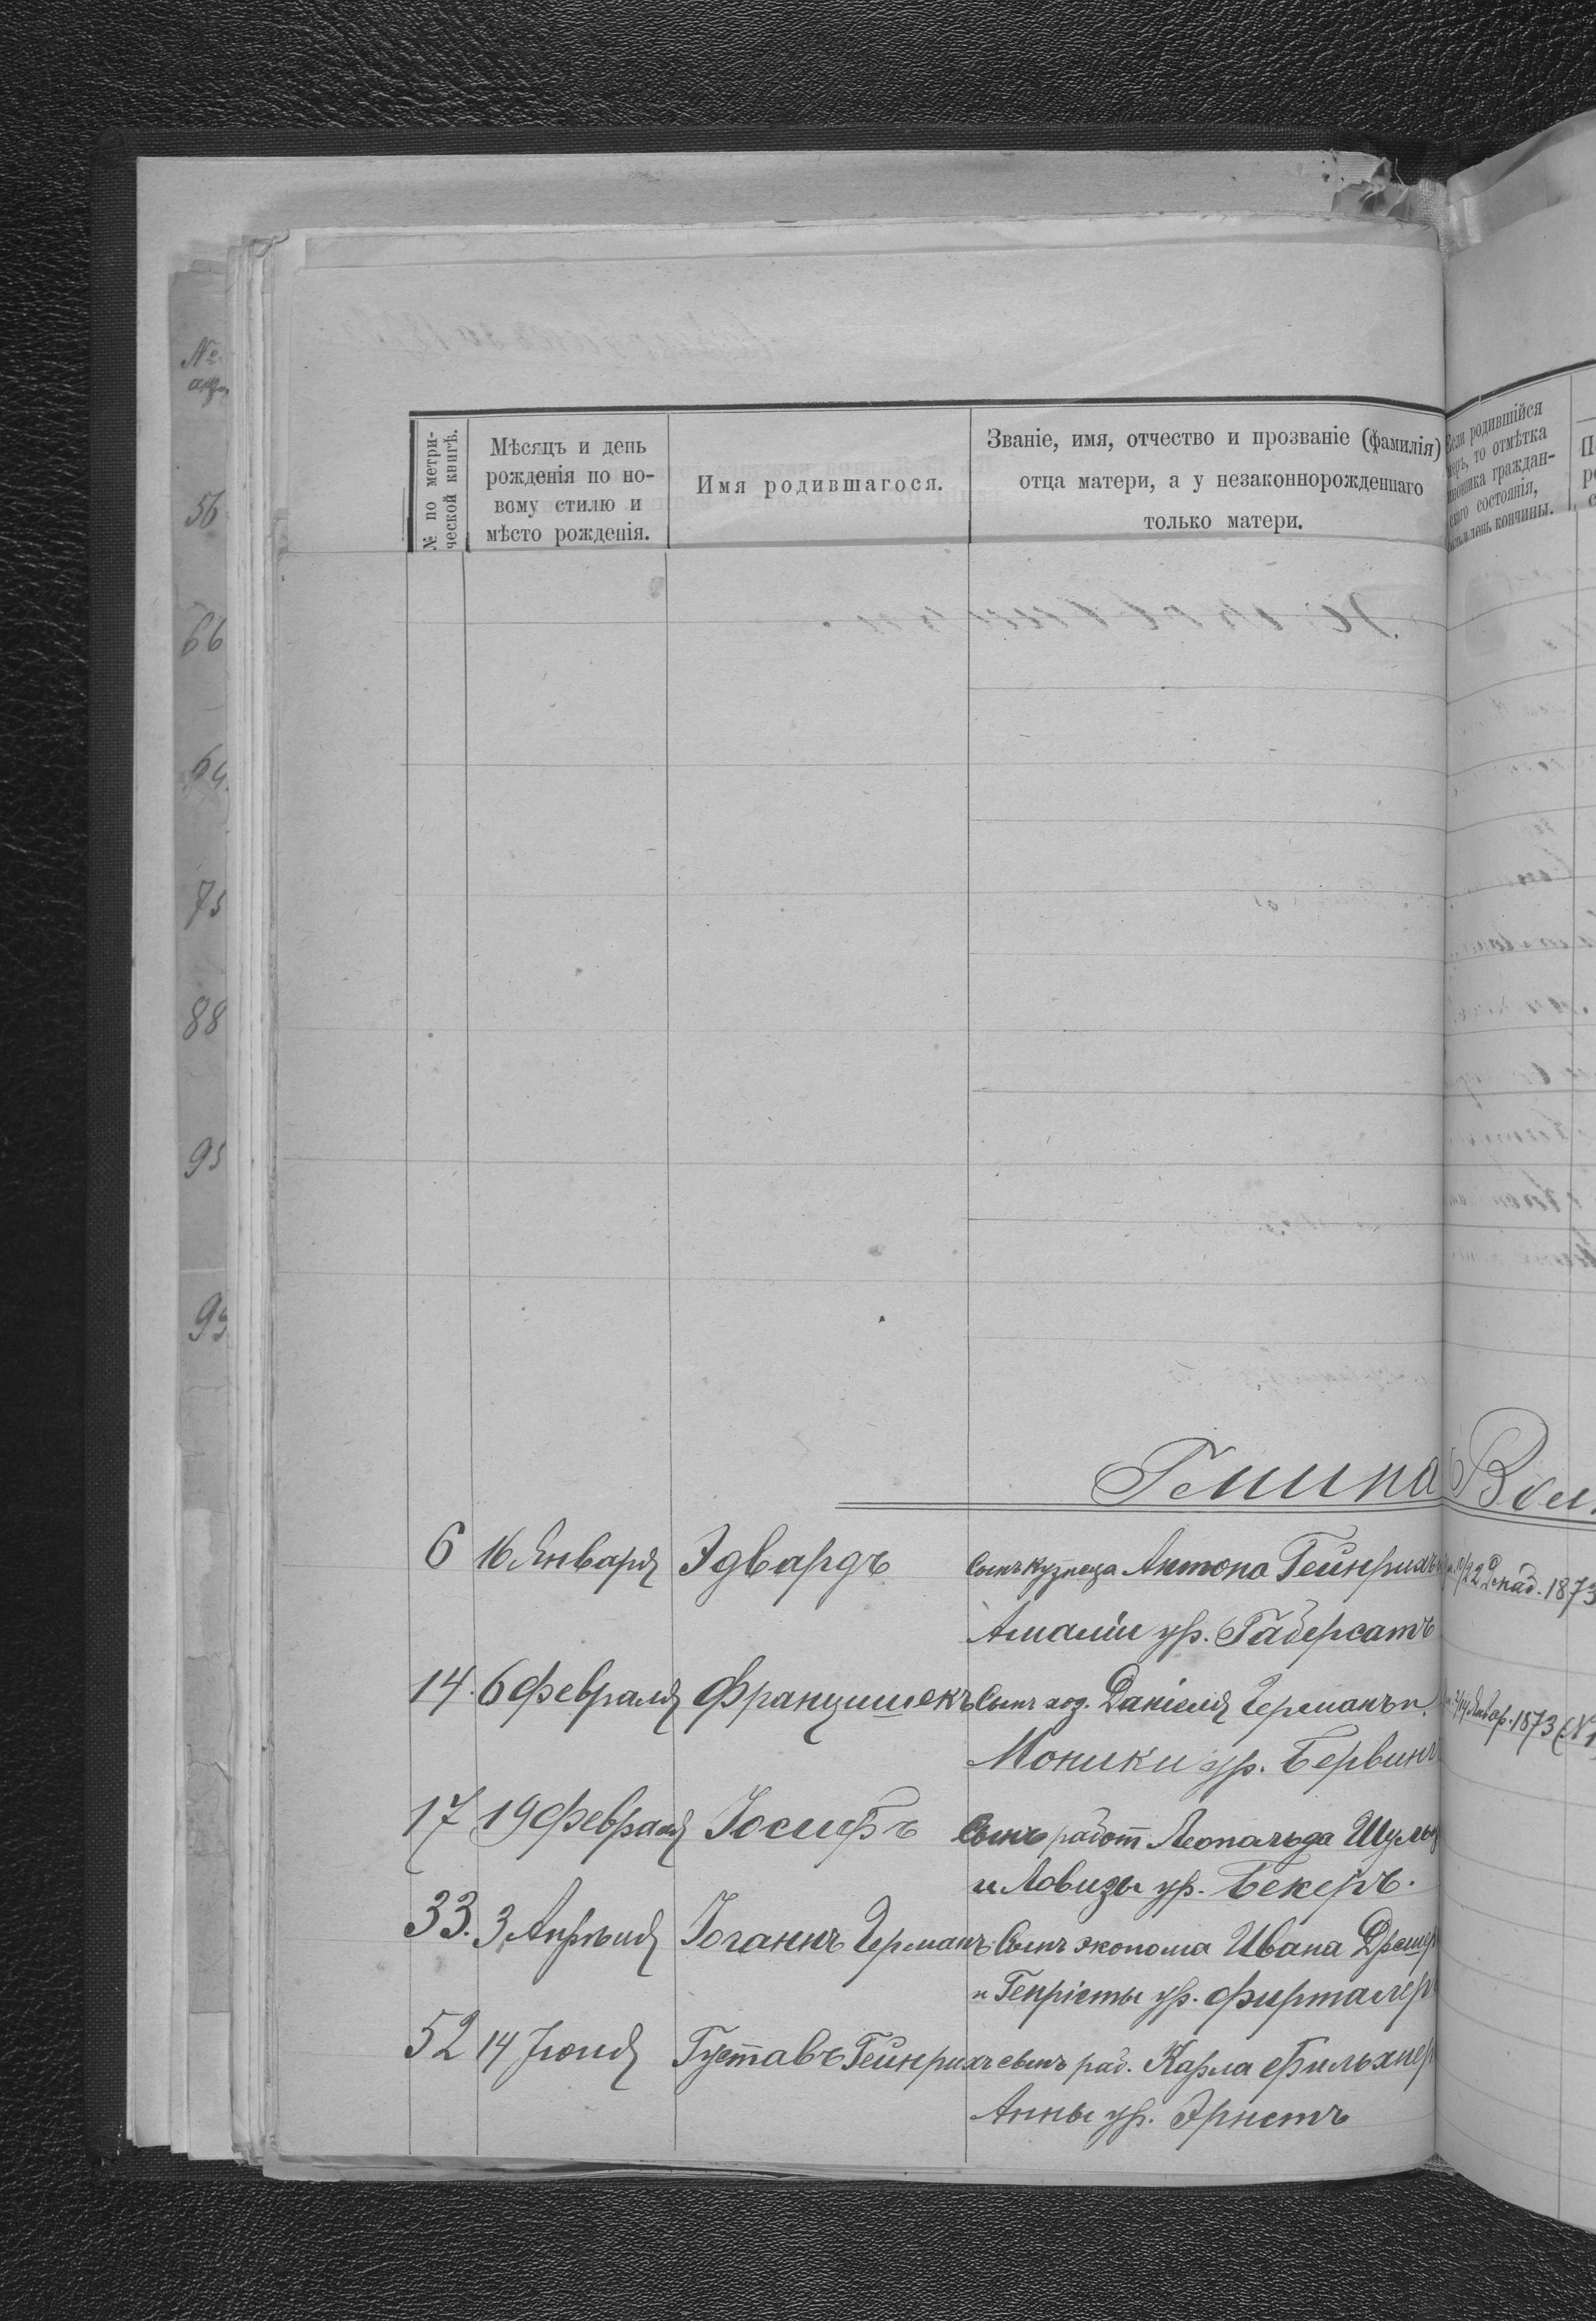 №
анр.
56
66
64.
75
88
95
99
№ по метри-
ческой книгѣ.
Мѣсяцъ и день
рожденія по но-
вому стилю и
мѣсто рожденія.
Имя родившагося.
Званіе, имя, отчество и прозваніе (фамилія)
отца матери, а у незаконнорожденнаго
только матери.
Если родившійся
то отмѣтка
граждан-
состоянія,
день кончины.
Гмина Вол
6 16 Января Эдвардъ Сынъ кузнеца Антона Гейнрихъ
Амаліи ур. Габерсатъ
22 1873
14. 6 Февраля Францишекъ Сынъ хоз. Даніеля Германъ и
Моники ур. Бервинъ
Январ. 1873 (№
17 19 Февраля Іосифъ Сынъ работ Леопольда Шульц
и Ловизы ур. Бекеръ.
33. 3 Апрѣля Іоганнъ Германъ Сынъ эконома Ивана Дрешер
и Генріеты ур. Фирталер
52 14 Іюня Густавъ Гейнрихъ сынъ раб. Карла Фильхнер
Анны ур. Эрнстъ